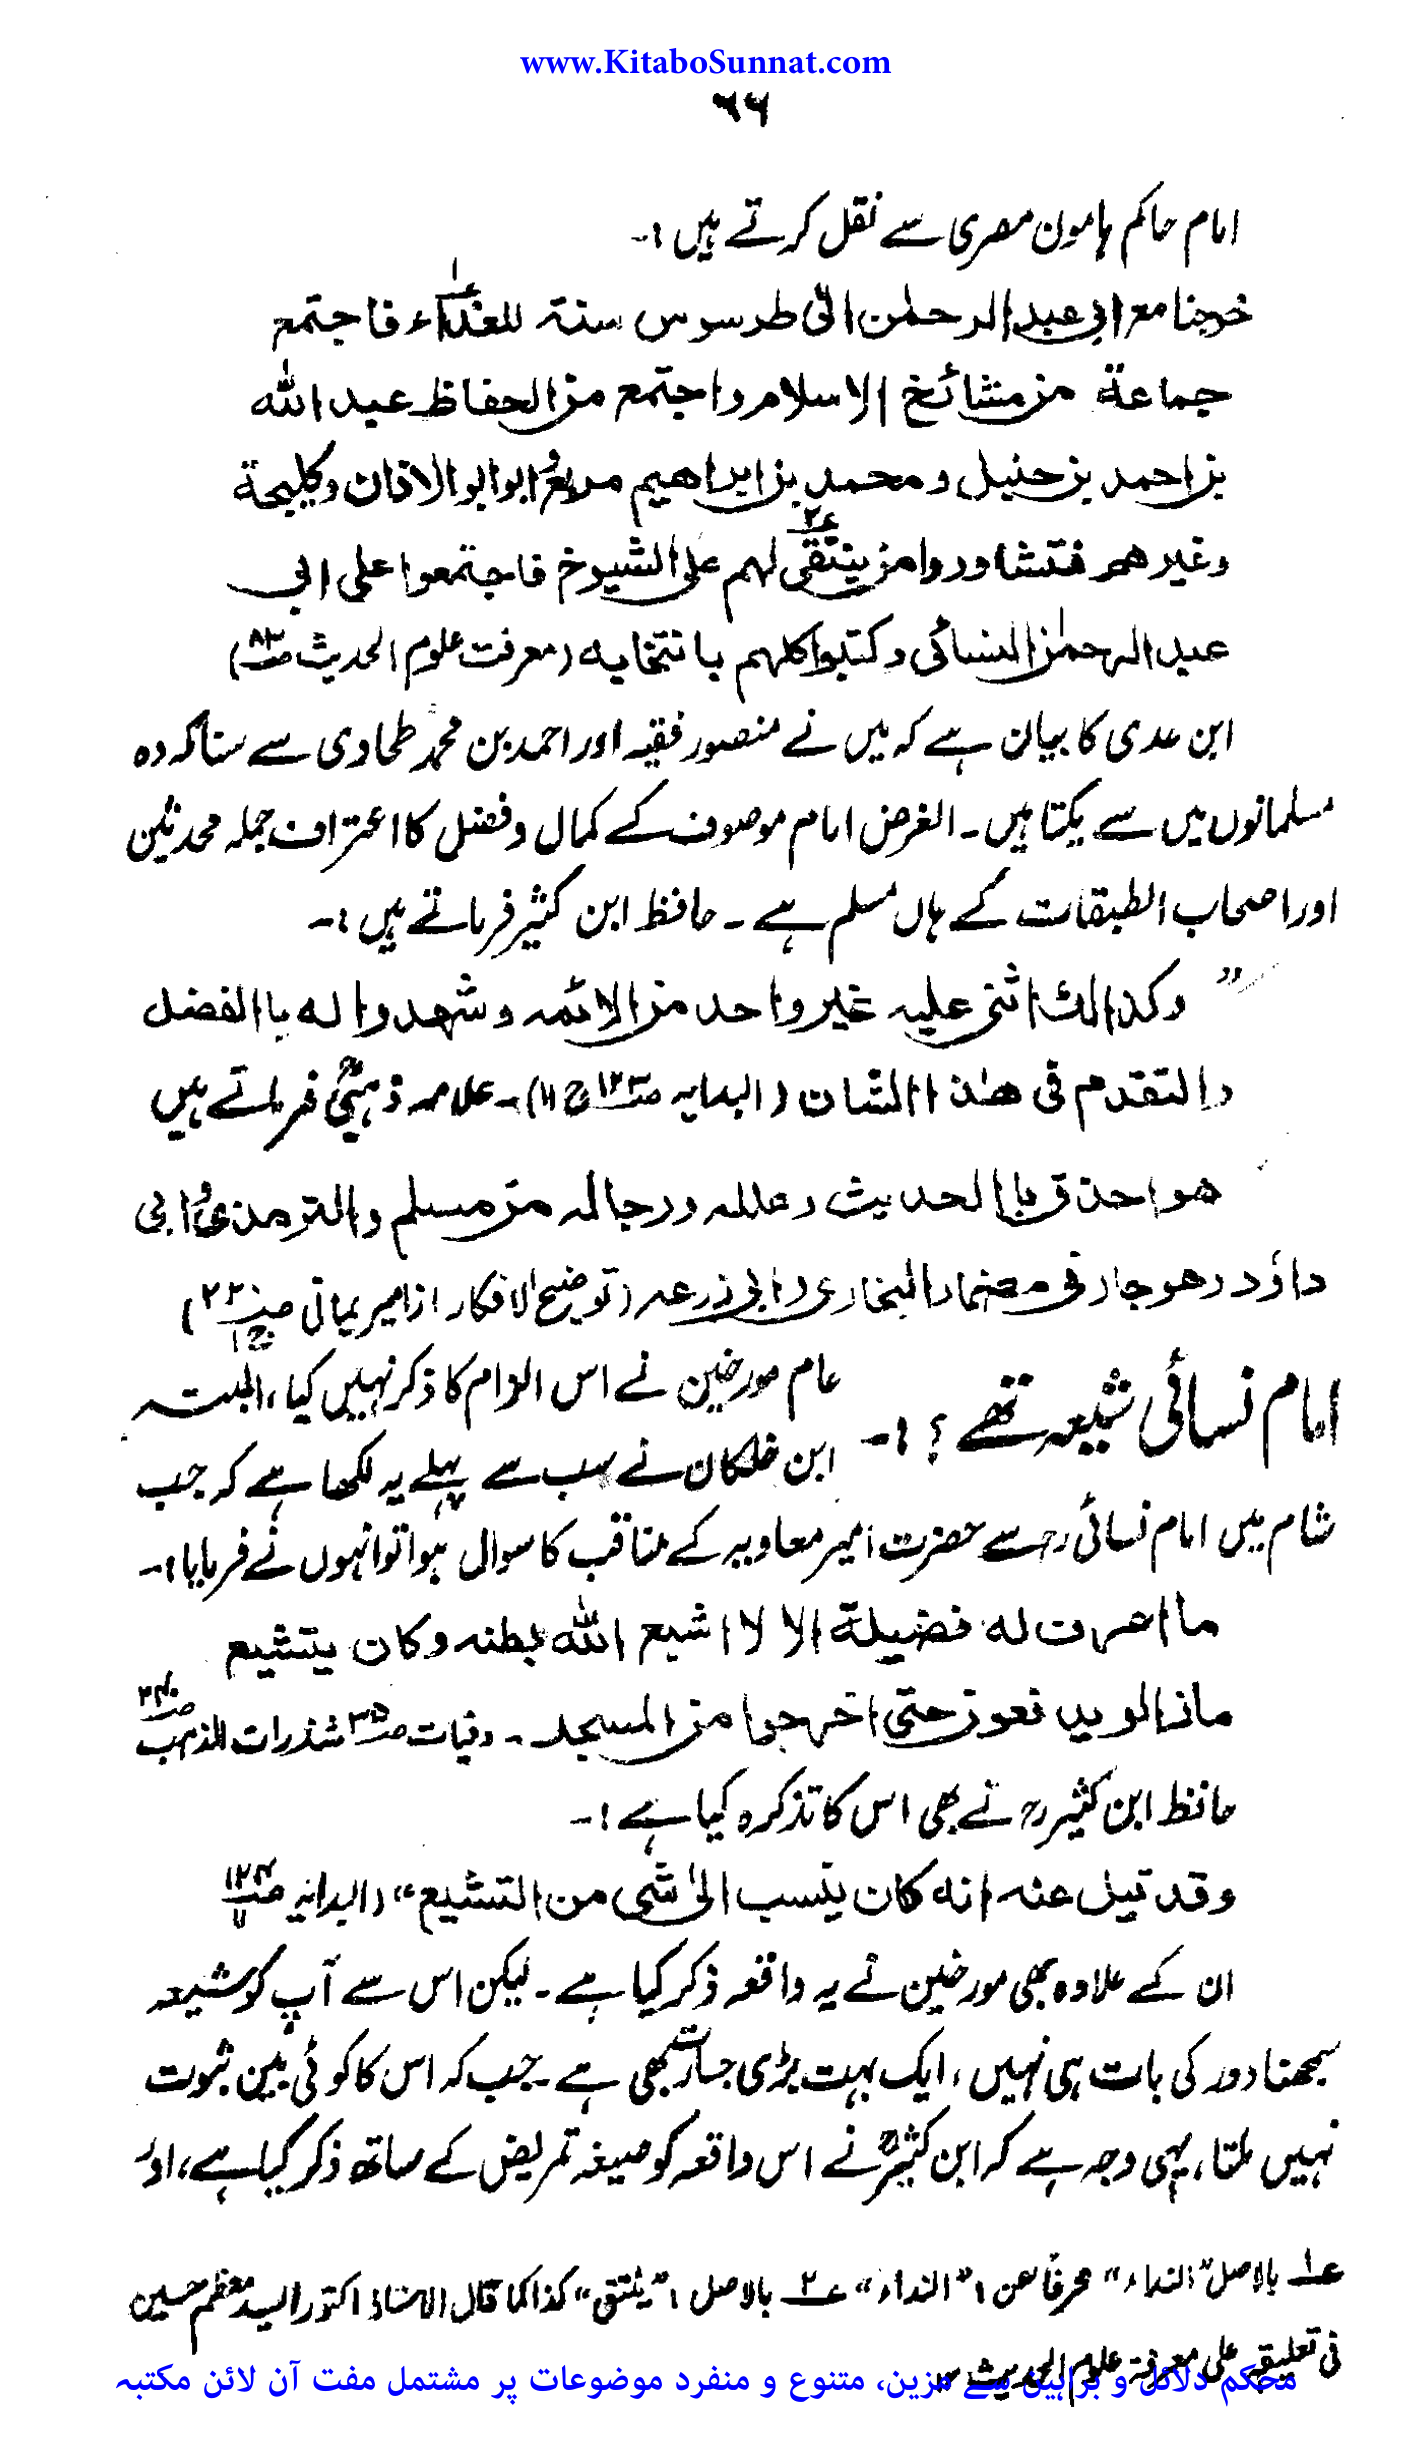 www.KitaboSunnat.com
٦٦
امام حاکم ہامون مصری سے نقل کرتے ہیں :۔
خرجنا مع ابی عبد الرحمٰن الیٰ طرسوس سنۃ للغداء فاجتمع
جماعۃ من مشائخ الاسلام واجتمع من الحفاظ عبد اللہ
بن احمد بن حنبل و محمد بن ابراھیم مربع و ابو ابو الاذان وکلیجۃ
وغیرھم فتشاوروا من ینتقی لہم علی الشیوخ فاجتمعوا علی ابی
عبد الرحمٰن النسائی وکتبوا کلہم بانتخابہ (معرفت علوم الحدیث صـ۸۳)
ابن عدی کا بیان ہے کہ میں نے منصور فقیہ اور احمد بن محمد طحاوی سے سنا کہ وہ
مسلمانوں میں سے یکتا ہیں۔ الغرض امام موصوف کے کمال و فضل کا اعتراف جملہ محدثین
اور اصحاب الطبقات کے ہاں مسلم ہے ۔ حافظ ابن کثیر فرماتے ہیں :۔
” وکذالک اثنی علیہ غیر واحد من الائمہ وشھدوا لہ باالفضل
والتقدم فی ھٰذا الشان (البدایہ صـ۱۲۳ ج ۱۱)۔ علامہ ذہبیؒ فرماتے ہیں
ھو احذق باالحدیث وعللہ ورجالہ من مسلم والترمذی و ابی
داؤد وھو جار فی مضمار البخاری وابی زرعہ (توضیح الافکار از امیر یمانی صـ۲۲۰ ج۱)
امام نسائی شیعہ تھے ؟ :۔ عام مورخین نے اس الزام کا ذکر نہیں کیا، البتہ
ابن خلکان نے سب سے پہلے یہ لکھا ہے کہ جب
شام میں امام نسائی رح سے حضرت امیر معاویہ کے مناقب کا سوال ہوا تو انہوں نے فرمایا :۔
ما اعرف لہ فضیلۃ الا لا اشبع اللہ بطنہ وکان یتشیع
مازالو یدفعون حتی اخرجوا من المسجد ۔ وفیات صـ۳۵ شذرات الذہب صـ۲۴۰
حافظ ابن کثیر رح نے بھی اس کا تذکرہ کیا ہے :۔
وقد قیل عنہ انہ کان ینسب الیٰ شی من التشیع“ (البدایہ صـ۱۲۴
ان کے علاوہ بھی مورخین نے یہ واقعہ ذکر کیا ہے ۔ لیکن اس سے آپ کو شیعہ
سمجھنا دور کی بات ہی نہیں، ایک بہت بڑی جسارت بھی ہے ۔ جب کہ اس کا کوئی بین ثبوت
نہیں ملتا، یہی وجہ ہے کہ ابن کثیرؒ نے اس واقعہ کو صیغہ تمریض کے ساتھ ذکر کیا ہے، اور
عـ۱ بالاصل ”الغداء“ محرفا عن ”الفداء“ عـ۲ بالاصل ”ینتق“ کذا کما قال الاستاذ اکتور السید معظم حسین
فی تعلیقہ علی معرفۃ علوم الحدیث
محکم دلائل و براہین سے مزین، متنوع و منفرد موضوعات پر مشتمل مفت آن لائن مکتبہ